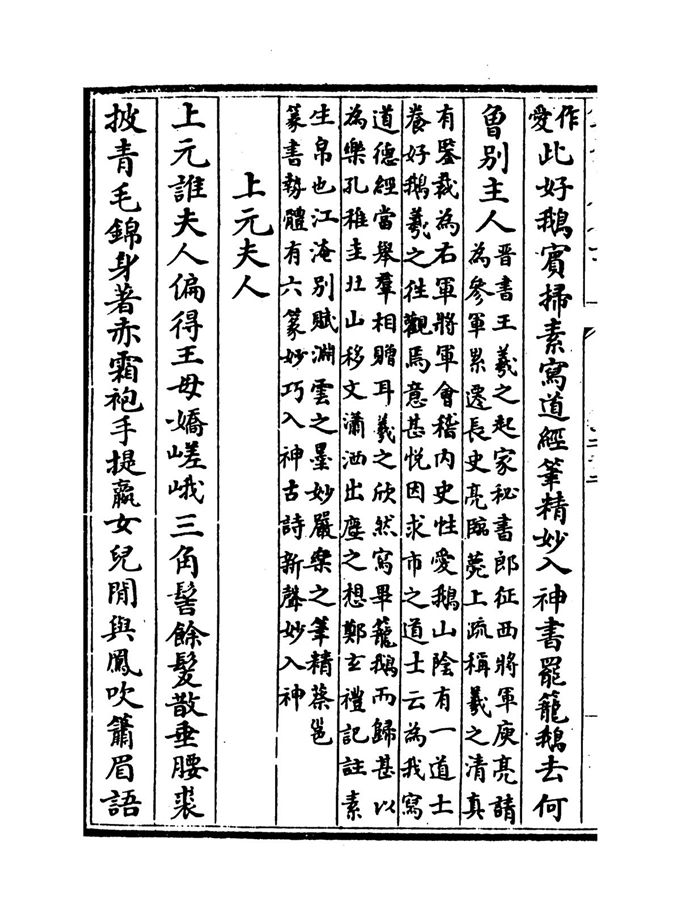 作愛此好鵝賓掃素寫道經筆精妙入神書罷籠鵝去何
曾別主人晉書王羲之起家秘書郎征西將軍庾亮請
為參軍累遷長史亮臨薨上疏稱羲之清真
有鑒裁為右軍將軍會稽內史性愛鵝山陰有一道士
養好鵝羲之往觀焉意甚悅因求市之道士云為我寫
道德經當舉羣相贈耳羲之欣然寫畢籠鵝而歸甚以
為樂孔稚圭北山移文瀟洒出塵之想鄭玄禮記註素
生帛也江淹別賦淵雲之墨妙嚴樂之筆精蔡邕
篆書勢體有六篆妙巧入神古詩新聲妙入神
上元夫人
上元誰夫人偏得王母嬌嵯峨三角髻餘髮散垂腰裘
披青毛錦身著赤霜袍手提嬴女兒閒與鳳吹簫眉語